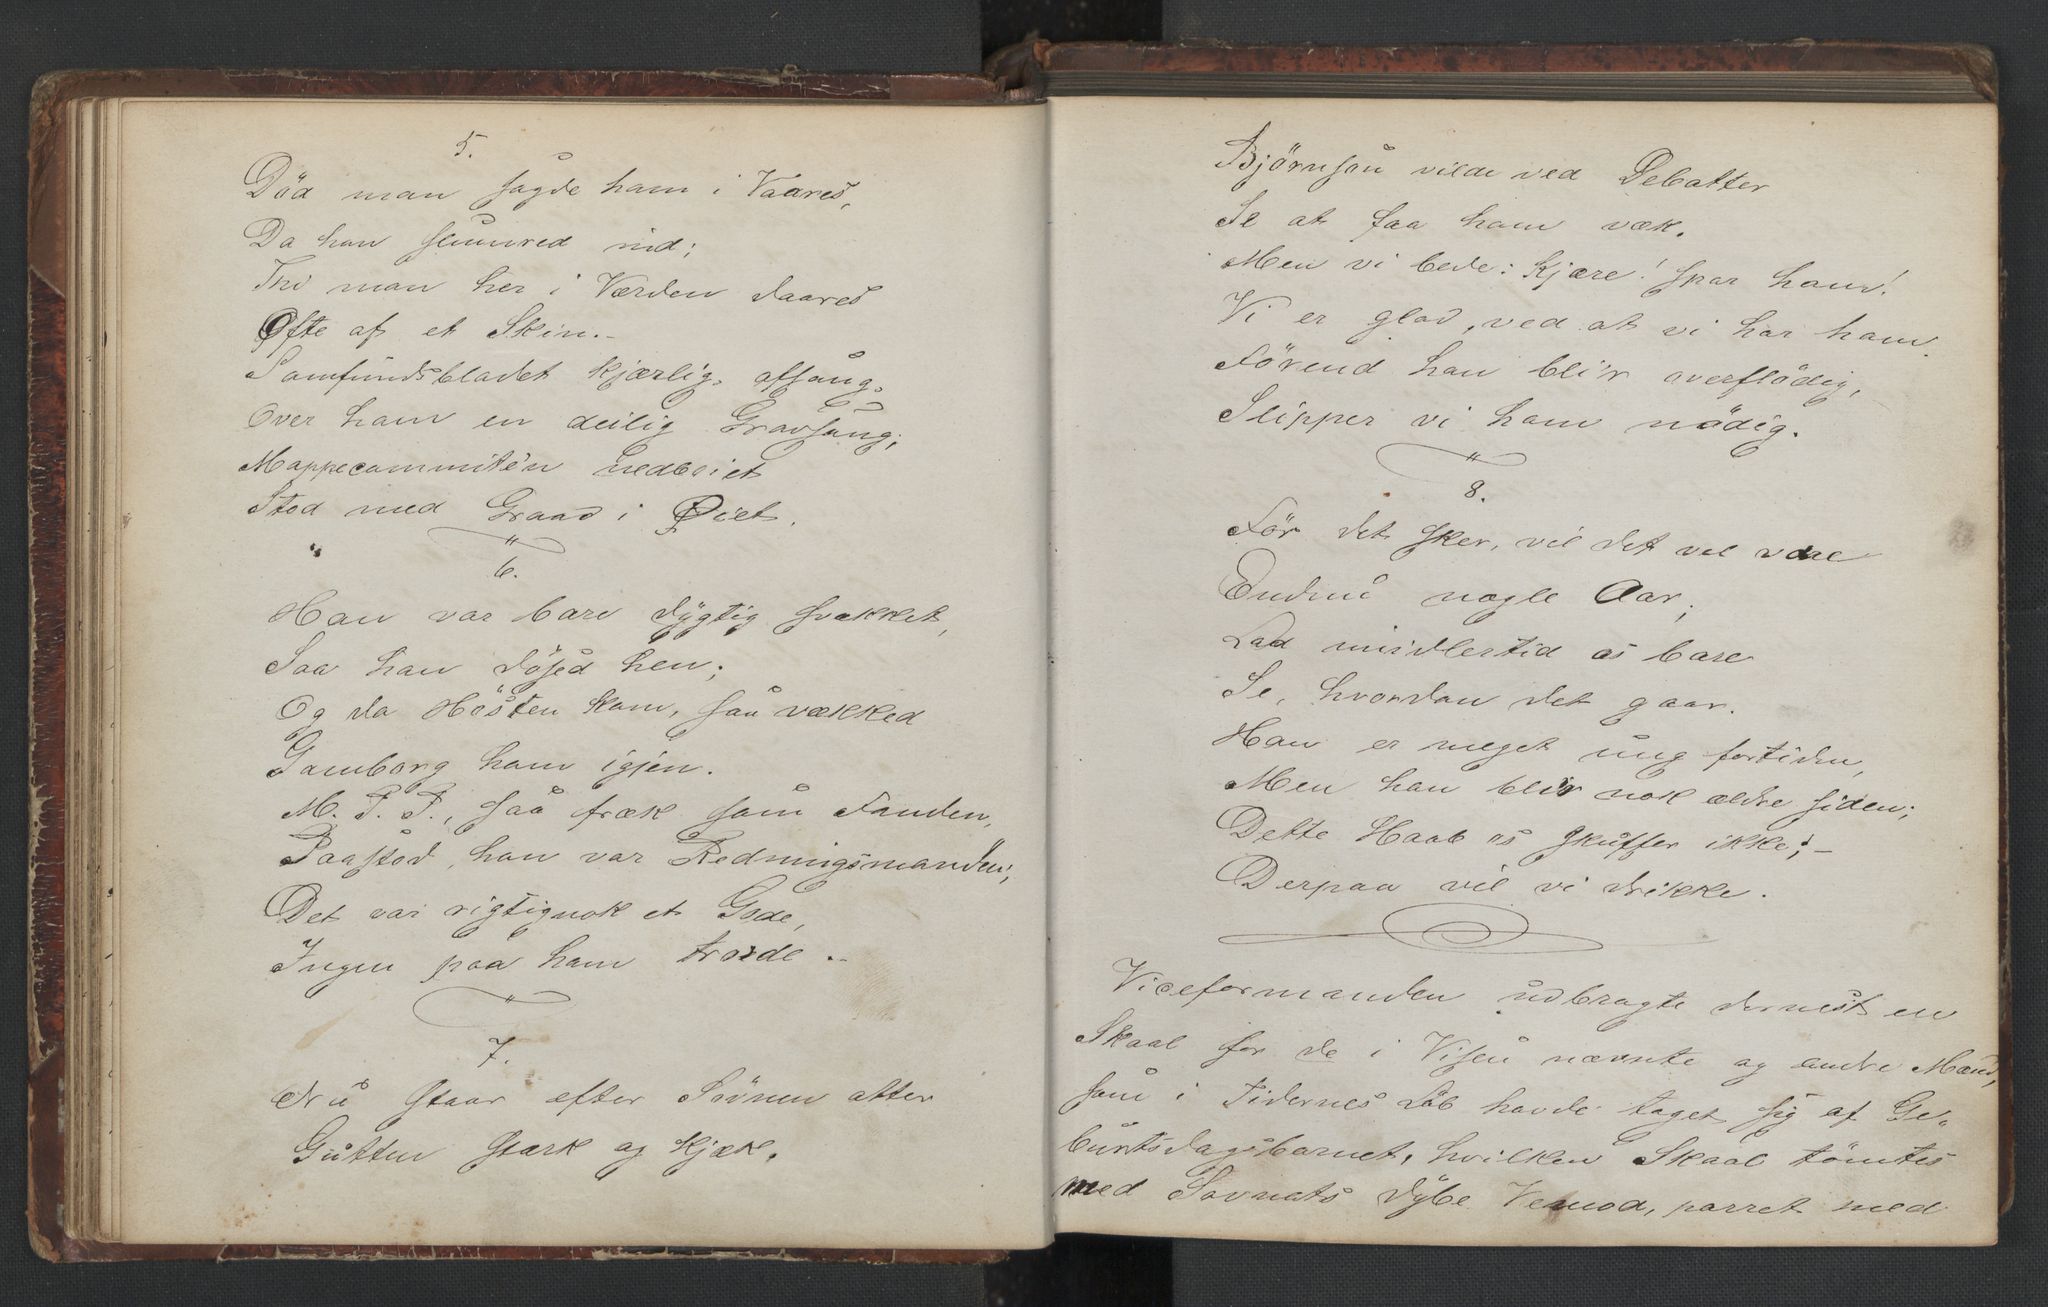 5.
Död man sagde ham i Vaares,
Da han slumred ind;
Thi man her i Verden daares
Ofte af et Skin.-
Samfundsbladet kjærlig afsang
Over ham en deilig Gravsang;
Mappecommitén nedbøiet
Stod med Graad i Øiet.
6.
Han var bare dygtig svækket,
Saa han døsed hen;
Og da Hösten kom, saa vækked
Gamborg ham igjen.
M. P. P., saa fræk som Fanden,
Paastod, han var Redningsmanden;
Det var rigtignok et Gode,
Ingen paa ham troede.-
7.
Nu staar efter Sövnen atter
Gutten stærk og kjæk.
Björnson vilde ved Debatter
Se at faa ham væk.
Men vi bede: kjære! spar ham!
Vi er glad, ved at vi har ham.
Förend han bli'r overflödig,
Slipper vi ham nödig.
8.
För det sker, vil det vel være
Endnu nogle Aar;
Lad imidlertid os bare
Se, hvordan det gaar.
Han er meget ung fortiden,
Men han blir nok ældre siden;
Dette Haab os skuffer ikke;-
Derpaa vil vi drikke.
Viceformanden udbragte dernest en
Skaal for de i Visen nævnte og andre Mænd,
som i Tidernes Löb havde taget sig af Ge-
burtsdagsbarnet, hvilken Skaal tömtes
med Savnets dybe Vemod, parret med